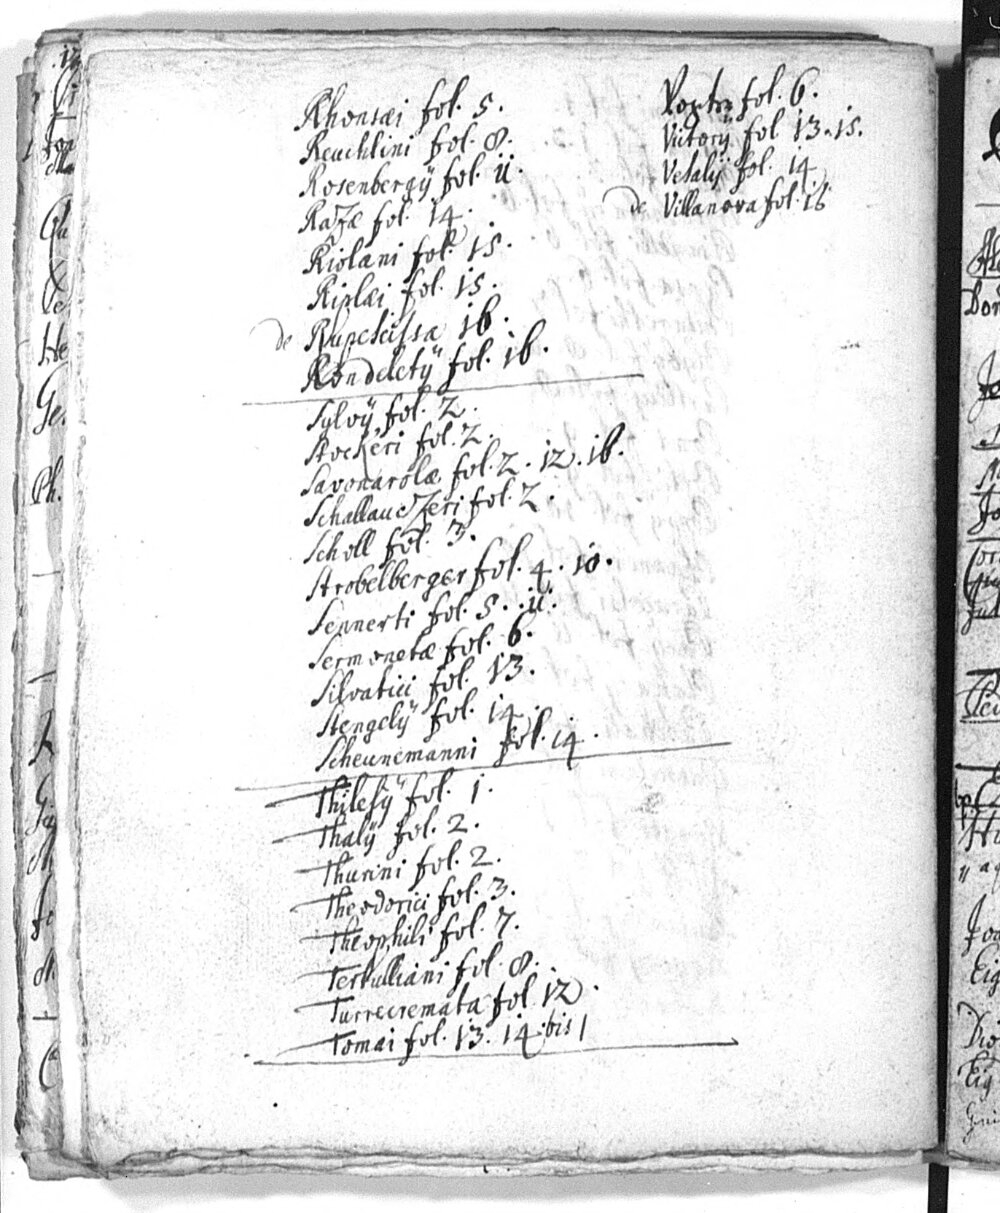 Rhonsæi fol. 5.
Reuchlini fol. 8.
Rosenbergÿ fol. ii.
Razæ fol. 14.
Riolani fol. 15.
Riplæi fol. 15.
de Rupescissa 16.
Rondeletÿ fol. 16.
Sylvÿ fol. 2.
Stockeri fol. 2.
Savonarolæ fol. 2. 12. 16.
Schallauczeri fol. 2.
Scholl fol. 3.
Strobelberger fol. 4. 10.
Sennerti fol. 5. ii.
Sermonetæ fol. 6.
Silvatici fol. 13.
Stengelÿ fol. 14.
Scheunemanni fol. 14.
Thilesÿ fol. 1.
Thalÿ fol. 2.
Thurini fol. 2.
Theodorici fol. 3.
Theophili fol. 7.
Tertulliani fol. 8.
Turrecremata fol. 12.
Tomai fol. 13. 14. bis
fol. 6.
Victorÿ fol 13. 15.
Vesalÿ fol. 14
de Villanova fol. 16